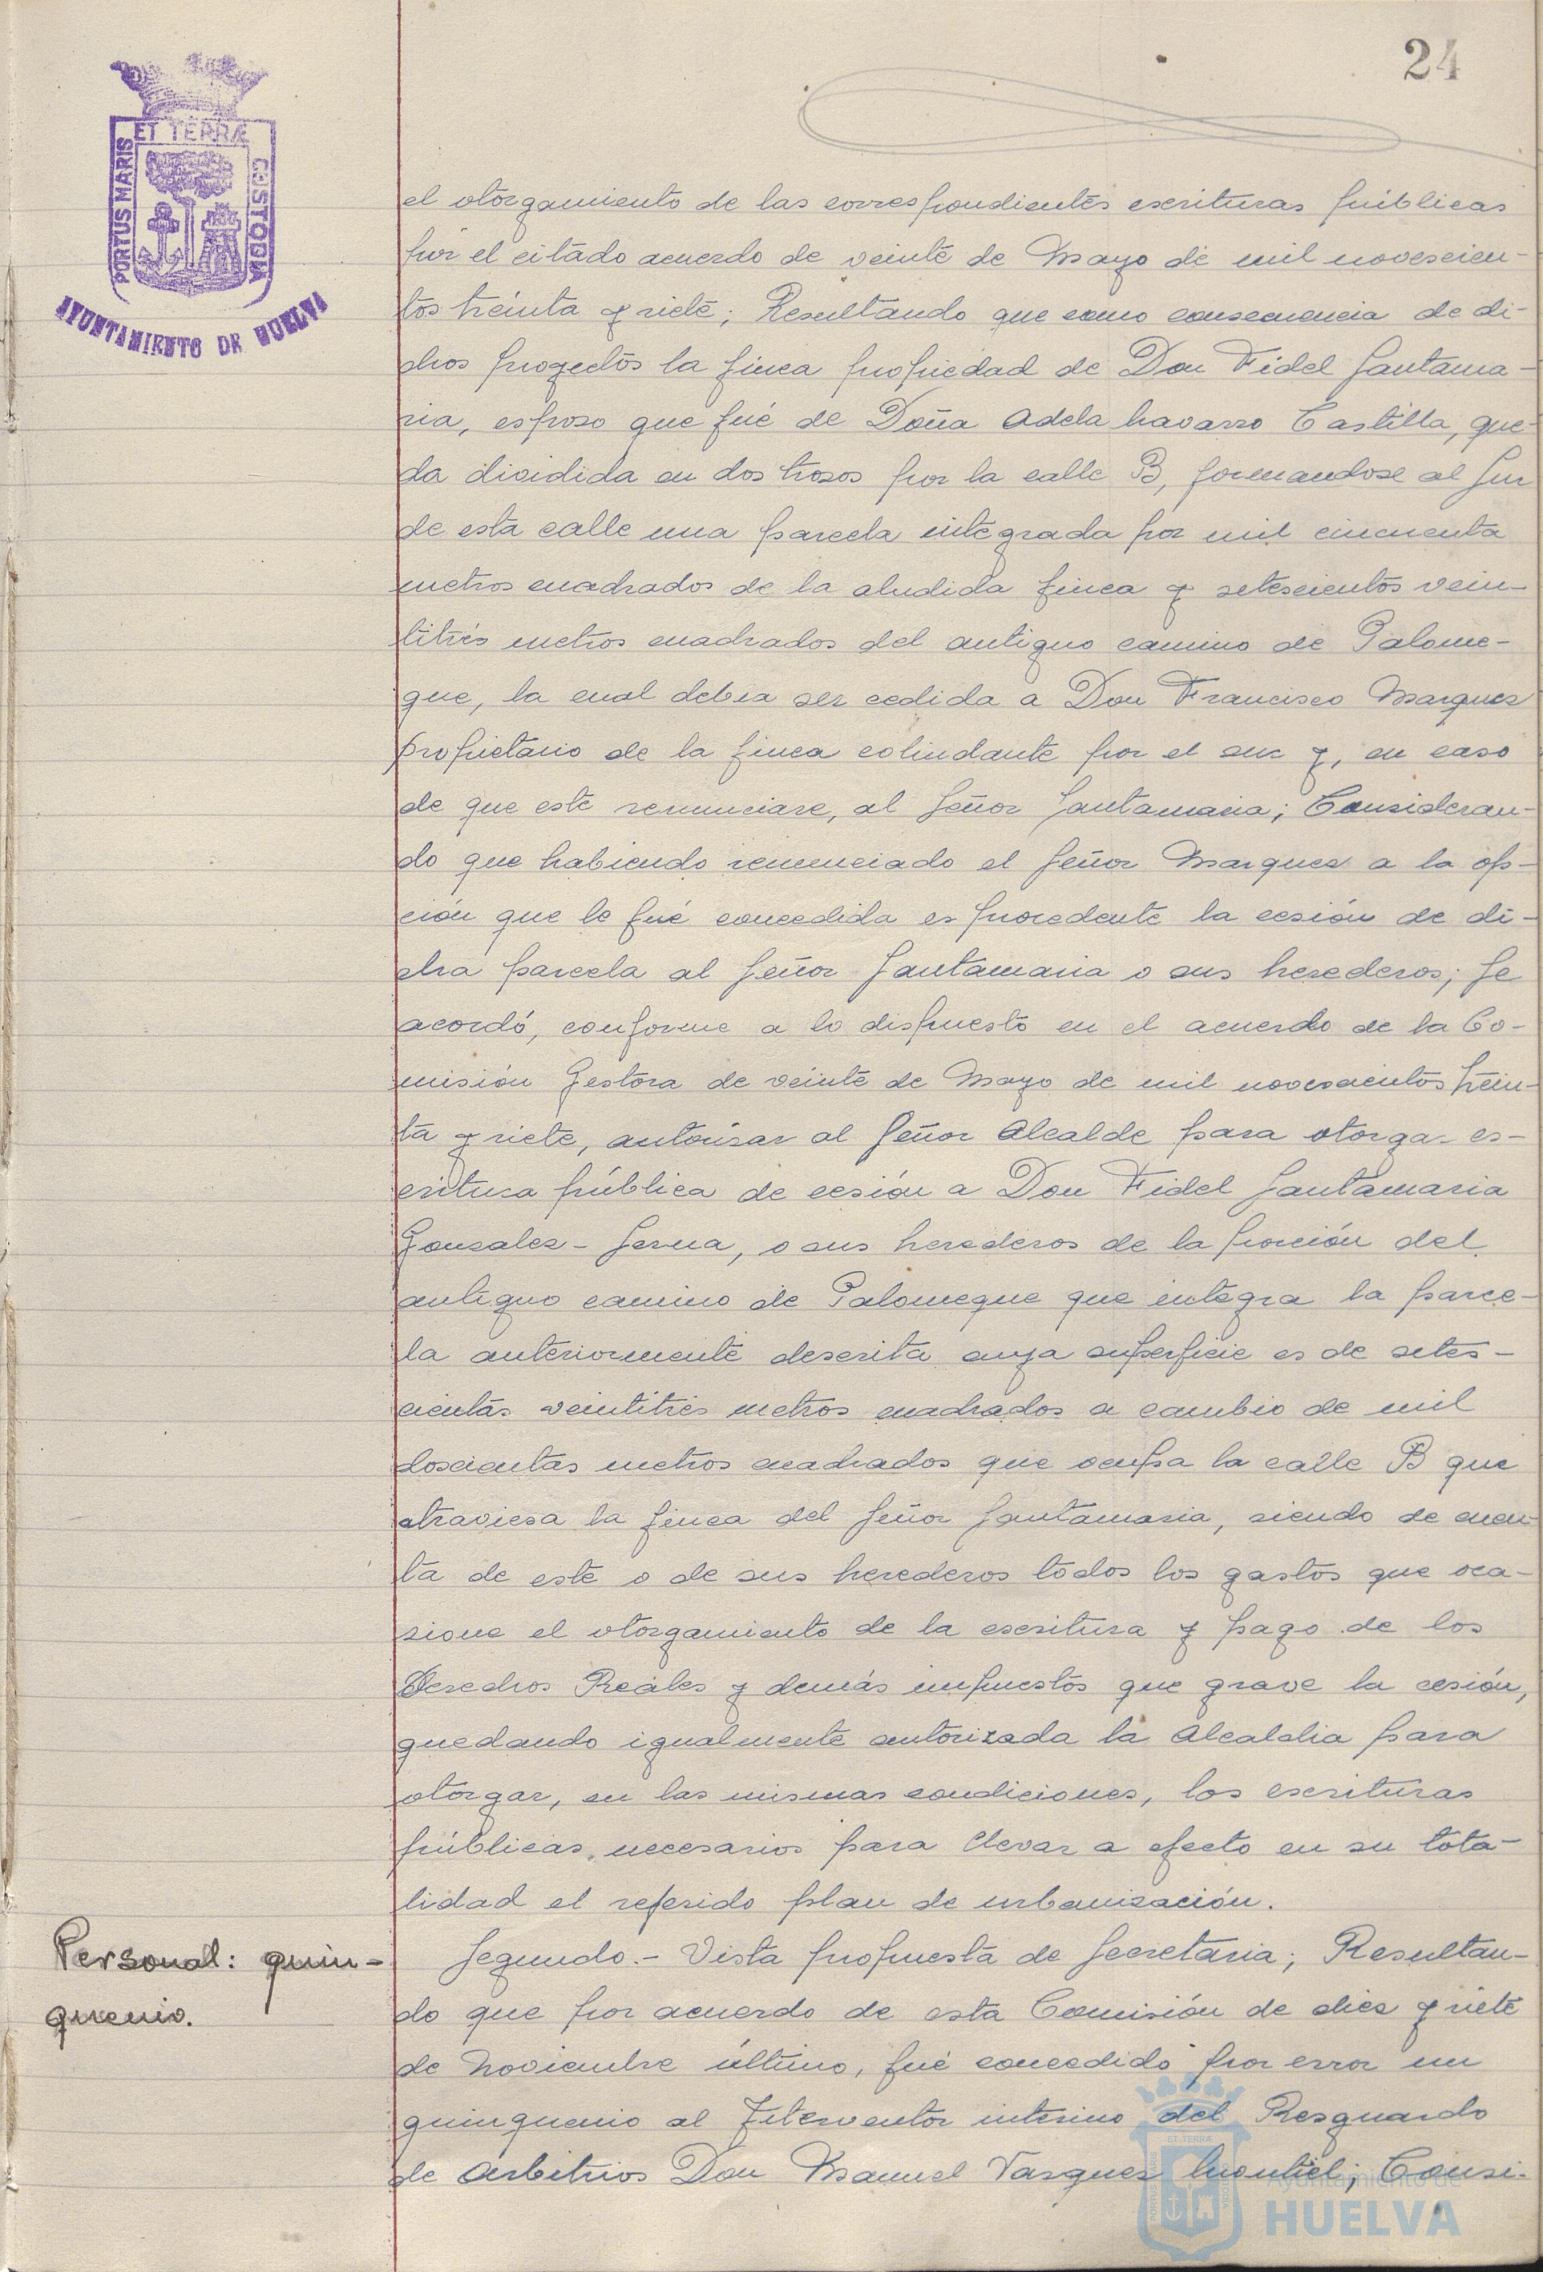 24
ET TERRÆ
PORTUS MARIS
CUSTODIA
AYUNTAMIENTO DE HUELVA
el otorgamiento de las correspondientes escrituras públicas
por el citado acuerdo de veinte de Mayo de mil novescien-
tos treinta y siete; Resultando que como consecuencia de di-
chos proyectos la finca propiedad de Don Fidel Santama-
ria, esposo que fué de Doña Adela Navarro Castilla, que-
da dividida en dos trosos por la calle B, formandose al Sur
de esta calle una parcela integrada por mil cincuenta
metros cuadrados de la aludida finca y setescientos vein-
titrés metros cuadrados del antiguo camino de Palome-
que, la cual debia ser cedida a Don Francisco Marquez
propietario de la finca colindante por el sur y, en caso
de que este renunciare, al Señor Santamaria; Consideran-
do que habiendo renunciado el Señor Marquez a la op-
ción que le fué concedida es procedente la cesión de di-
cha parcela al Señor Santamaria o sus herederos; Se
acordó, conforme a lo dispuesto en el acuerdo de la Co-
misión Gestora de veinte de Mayo de mil novescientos trein-
ta y siete, autorisar al Señor Alcalde para otorgar es-
critura pública de cesión a Don Fidel Santamaria
Gonzalez-Serna, o sus herederos de la porción del
antiguo camino de Palomeque que integra la parce-
la anteriormente descrita cuya superficie es de setes-
cientas veintitrés metros cuadrados a cambio de mil
doscientas metros cuadrados que ocupa la calle B que
atraviesa la finca del Señor Santamaria, siendo de cuen-
ta de este o de sus herederos todos los gastos que oca-
sione el otorgamiento de la escritura y pago de los
Derechos Reales y demás impuestos que grave la cesión,
quedando igualmente autorizada la Alcaldia para
otorgar, en las mismas condiciones, las escrituras
públicas, necesarios para llevar a efecto en su tota-
lidad el referido plan de urbanización.
Personal: quin-
quenio.
Segundo.- Vista propuesta de Secretaria; Resultan-
do que por acuerdo de esta Comisión de diez y siete
de Noviembre último, fué concedido por error un
quinquenio al Interventor interino del Resguardo
de Arbitrios Don Manuel Vazquez Montiel; Consi-
Ayuntamiento de
HUELVA